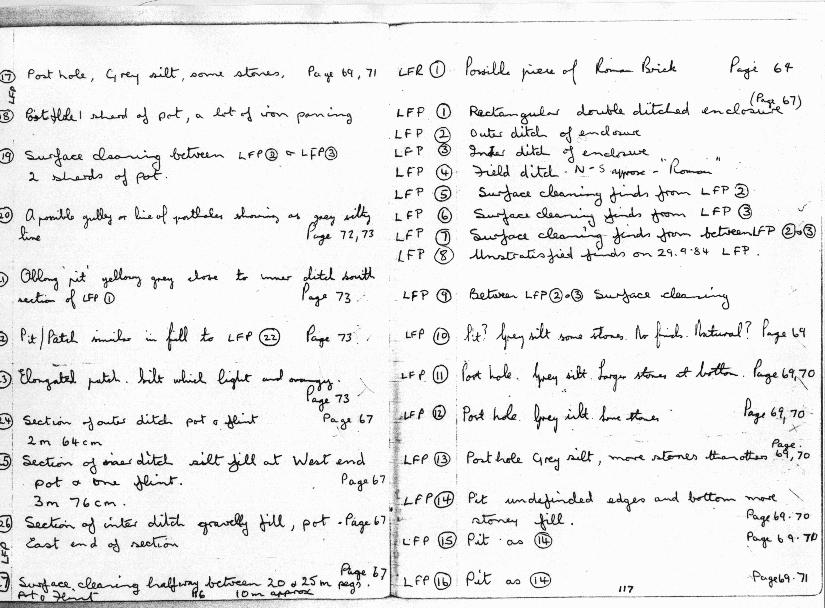 17 Post hole, Grey silt, some stones, Page 69, 71
LFP
18 1 sherd of pot, a lot of iron panning
19 Surface cleaning between LFP 2 & LFP 3
2 sherds of pot.
20 A possible gulley or line of postholes showing as grey silty
line Page 72,73
1 Oblong 'pit' yellowy grey close to inner ditch south
section of LFP 1 Page 73.
2 Pit/Patch similar in fill to LFP 22 Page 73
3 Elongated patch. Silt which light and orangey.
Page 73
24 Section of outer ditch pot & flint Page 67
2m 64cm
25 Section of inner ditch silt fill at West end
pot & one flint. Page 67
3m 76cm.
26 Section of inter ditch gravelly fill, pot - Page 67
LFP East end of section
Page 67
27 Surface cleaning halfway between 20 & 25m pegs.
Pot & Flint 116 10m approx
LFR 1 Possible piece of Roman Brick Page 64
(Page 67)
LFP 1 Rectangular double ditched enclosure
LFP 2 Outer ditch of enclosure
LFP 3 Inner ditch of enclosure
LFP 4 Field ditch. N-S approx - "Roman"
LFP 5 Surface cleaning finds from LFP 2
LFP 6 Surface cleaning finds from LFP 3
LFP 7 Surface cleaning finds from between LFP 2 & 3
LFP 8 Unstratisfied finds on 29.9.84 LFP.
LFP 9 Between LFP 2 & 3 Surface cleaning
LFP 10 Pit? Grey silt some stones. No finds. Natural? Page 69
LFP 11 Post hole. Grey silt. Larger stones at bottom. Page 69,70
LFP 12 Post hole. Grey silt. Some stones Page 69, 70
Page.
LFP 13 Posthole Grey silt, more stones than others 69,70
LFP 14 Pit undefinded edges and bottom more
stoney fill. Page 69.70
LFP 15 Pit as 14 Page 69.70
LFP 16 Pit as 14 Page 69.71
117